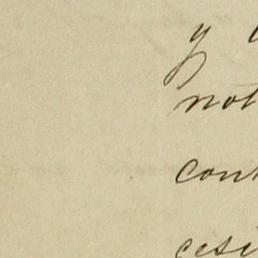 y
not
con
cesi